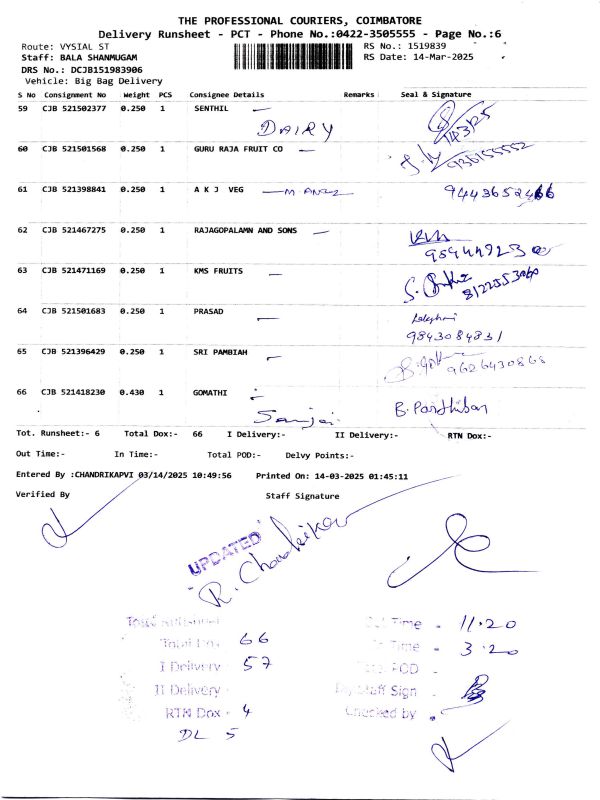 THE PROFESSIONAL COURIERS, COIMBATORE
Delivery Runsheet - PCT - Phone No.:0422-3505555 - Page No.:6
Route: VYSIAL ST
RS No.: 1519839
Staff: BALA SHANMUGAM
RS Date: 14-Mar-2025
DRS No.: DCJB151983906
Vehicle: Big Bag Delivery
S No Consignment No Weight PCS Consignee Details Remarks Seal & Signature
59 CJB 521502377 0.250 1 SENTHIL
DAIRY
60 CJB 521501568 0.250 1 GURU RAJA FRUIT CO
61 CJB 521398841 0.250 1 A K J VEG
62 CJB 521467275 0.250 1 RAJAGOPALAMN AND SONS
63 CJB 521471169 0.250 1 KMS FRUITS
64 CJB 521501683 0.250 1 PRASAD
9843084831
65 CJB 521396429 0.250 1 SRI PAMBIAH
66 CJB 521418230 0.430 1 GOMATHI
Sanjai B. Parthiban
Tot. Runsheet:- 6 Total Dox:- 66 I Delivery:- II Delivery:- RTN Dox:-
Out Time:- In Time:- Total POD:- Delvy Points:-
Entered By :CHANDRIKAPVI 03/14/2025 10:49:56 Printed On: 14-03-2025 01:45:11
Verified By Staff Signature
UPDATED
R. Chandrika
Out Time - 11.20
Total Dox 66 In Time - 3.20
I Delivery - 57 Total POD -
II Delivery - Dly Staff Sign
RTN Dox - 4 Checked by
DL 5